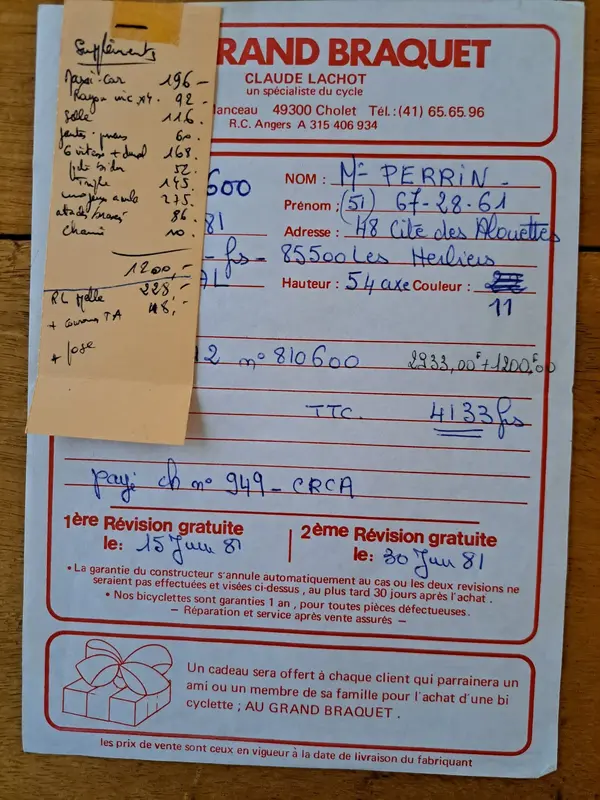 Suppléments
196 -
Rayon inox 92 -
Selle 116
60
6 vitesses + 168
52
145
275
86
10
1200,-
228,-
+ 48,-
+ pose
GRAND BRAQUET
CLAUDE LACHOT
un spécialiste du cycle
lanceau 49300 Cholet Tél.: (41) 65.65.96
R.C. Angers A 315 406 934
600
NOM : Mr PERRIN
81
Prénom : (51) 67-28-61
Adresse : 48 Cité des Alouettes
- fs - 85500 Les Herbiers
AL
Hauteur : 54 axe Couleur :
11
12 n° 810600 2933,00F + 1200,F00
TTC. 4133 frs
payé ch n° 949 - CRCA
1ère Révision gratuite
le: 15 Juin 81
2ème Révision gratuite
le: 30 Juin 81
• La garantie du constructeur s'annule automatiquement au cas ou les deux revisions ne
seraient pas effectuées et visées ci-dessus , au plus tard 30 jours après l'achat .
• Nos bicyclettes sont garanties 1 an , pour toutes pièces défectueuses.
— Réparation et service après vente assurés —
Un cadeau sera offert à chaque client qui parrainera un
ami ou un membre de sa famille pour l'achat d'une bi
cyclette ; AU GRAND BRAQUET .
les prix de vente sont ceux en vigueur à la date de livraison du fabriquant